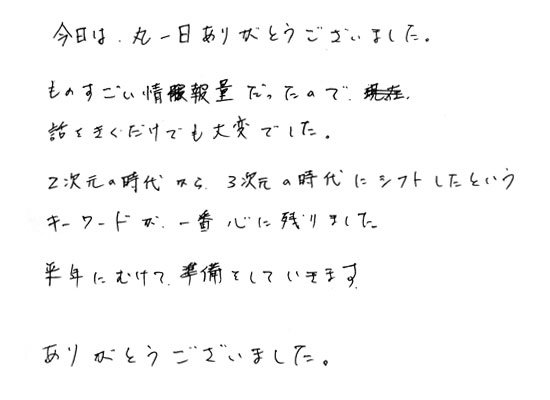 今日は、丸一日ありがとうございました。
ものすごい情報量だったので、
話をきくだけでも大変でした。
2次元の時代から、3次元の時代にシフトしたという
キーワードが、一番心に残りました
来年にむけて、準備をしていきます
ありがとうございました。